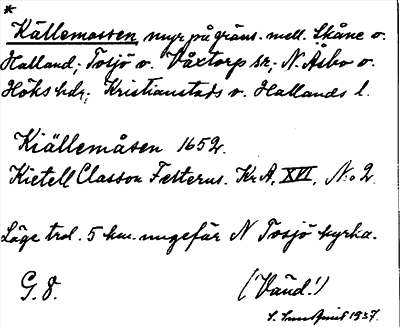 *
Källemossen, myr på gräns. mell. Skåne o.
Halland; Tosjö o. Våxtorp sn; N. Åsbo o.
Höks hdr; Kristianstads o. Hallands l.
Kiällemåsen 1652.
Kietell Classon Felterus. Kr. A. XVI. N:o 2.
Läge trol. 5 km. ungefär N Tosjö kyrka.
G. 8.
(Vänd!)
S. Sundquist 1937.